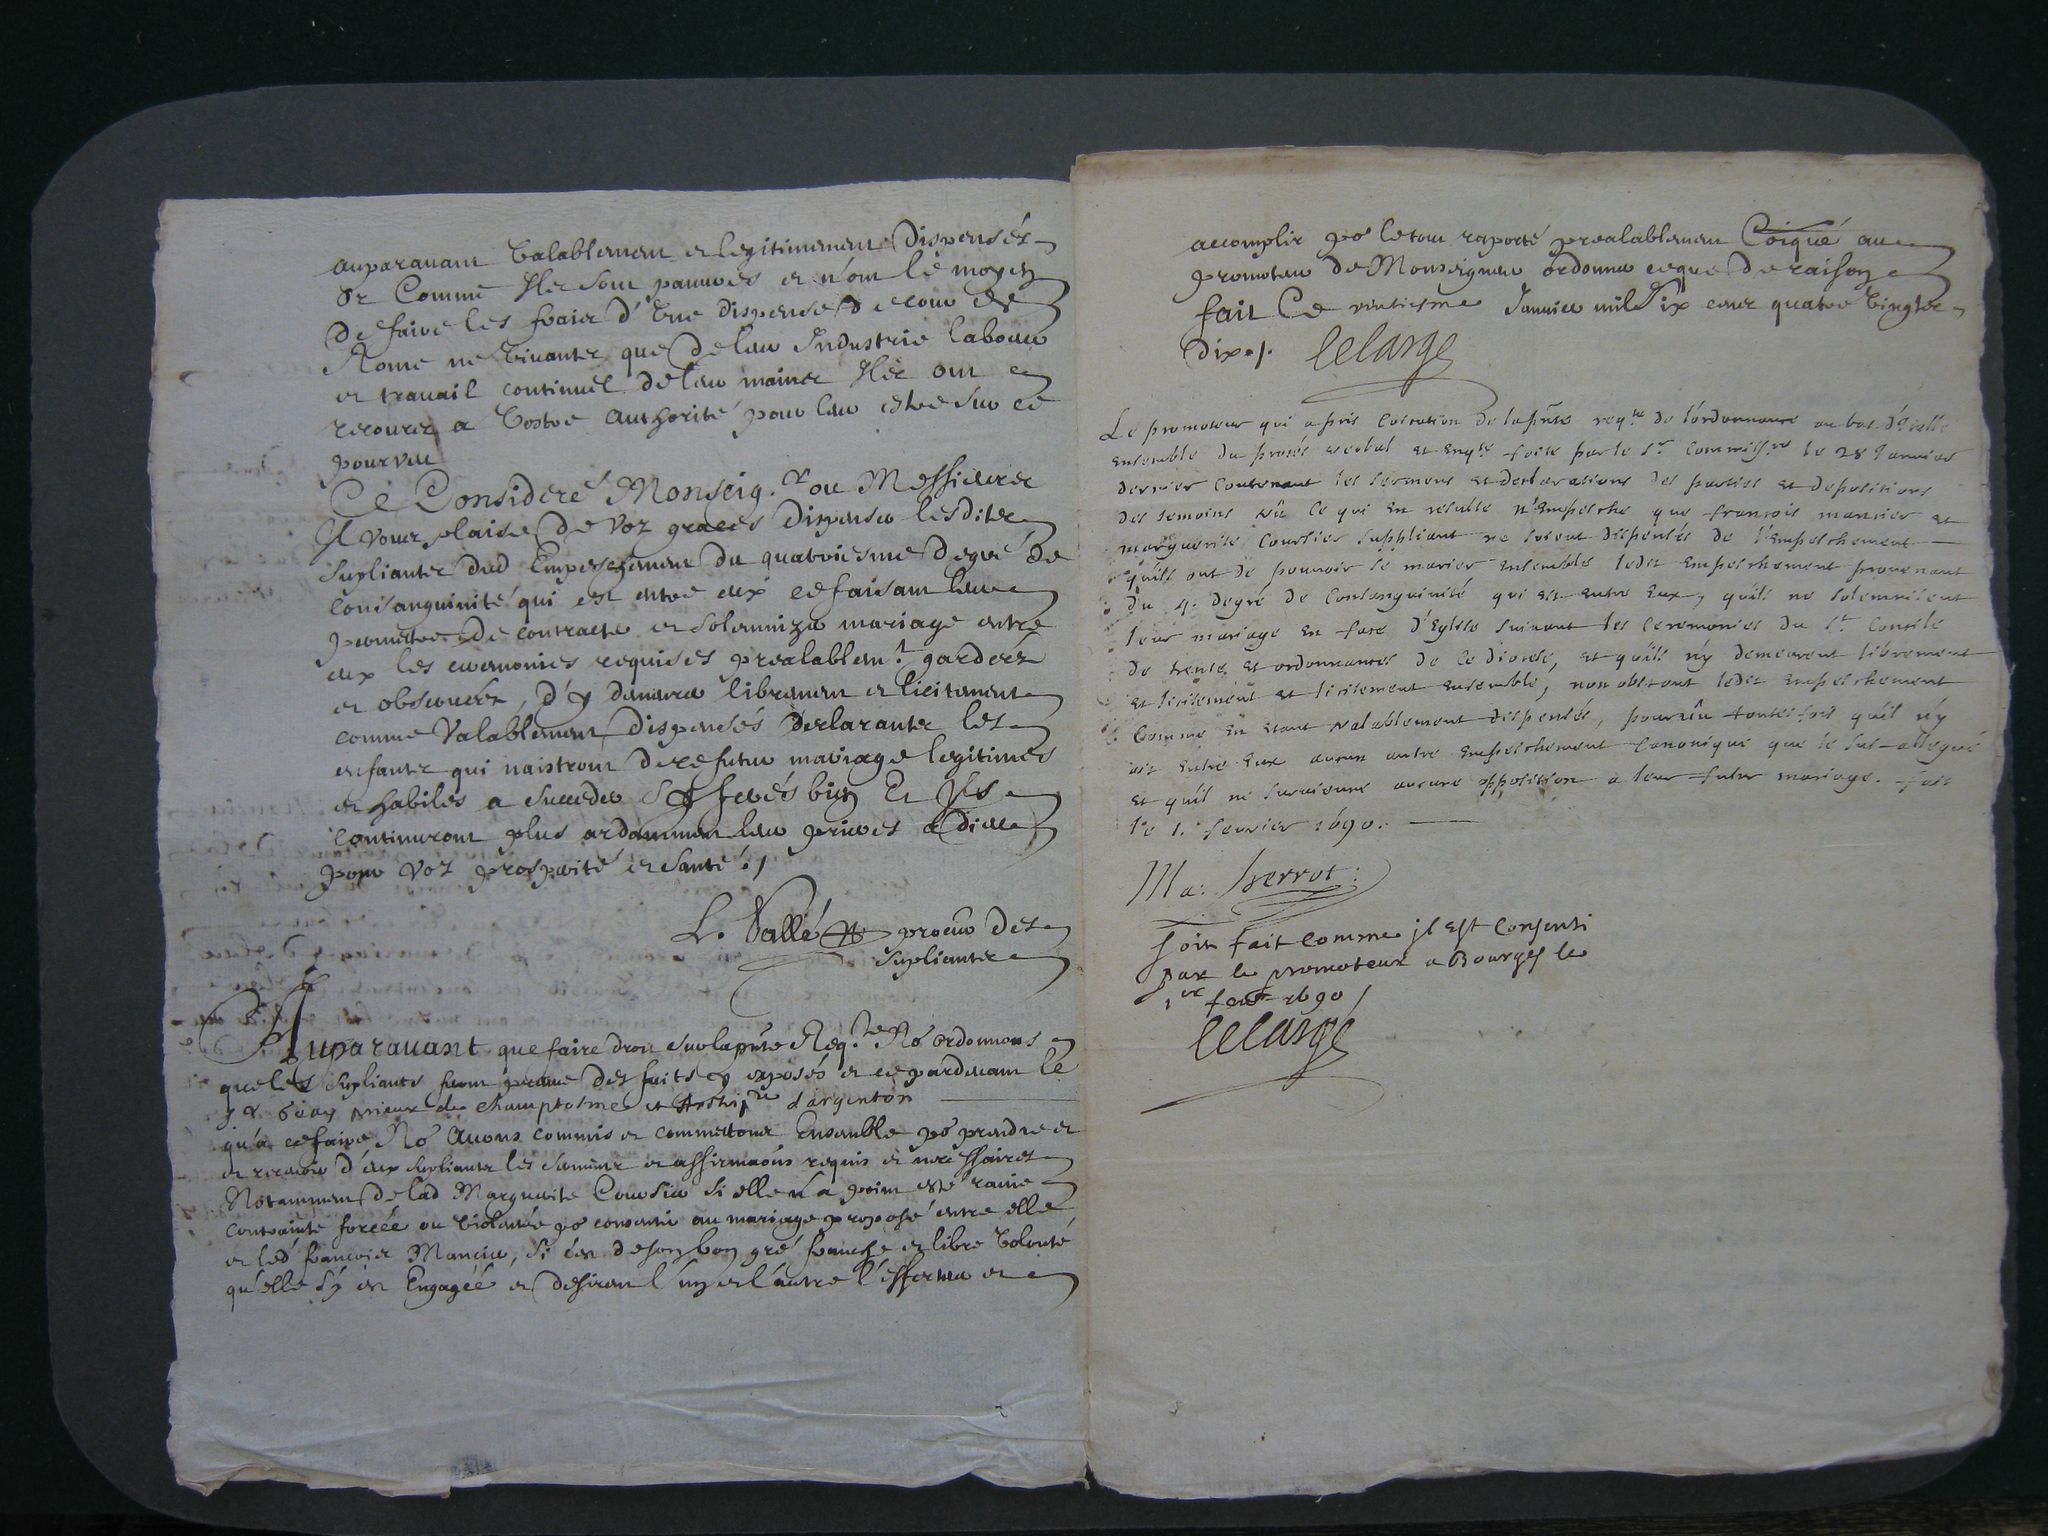 auparavant Valablement et legitimement Dispensés
Or Comme Ilz sont pauvres et n'ont le moyen
de faire les fraiz d'Une dispense de cour de
Rome ne Vivantz que de leur Industrie labeur
et travail continuel de leur mainz Ilz ont
recours a Vostre Authorité pour leur estre sur ce
pourveu
Ce Consideré Monseig.r ou Messieurs
Il vous plaise de voz graces dispenser lesditz
Supliantz dud Empeschement du quatriesme degré de
consanguinité qui est entre eux ce faisant leur
permettre de contracter et solemnizer mariage entre
eux les ceremonies requises prealablem.t gardeez
et observeez, d'y demeurer librement et licitement
comme Valablement dispensés declarantz les
enfantz qui naistront de ce futur mariage legitimes
et habiles a succeder Sy ferés bien Et Ilz
continuront plus ardamment leur prieres a Dieu
pour voz prosperité et santé ./
L. Vallé procur des
supliantz
Auparavant que faire droit sur la pnte Req.te No ordonnons
que les supliants feront preuve des faits y exposés et ce pardevant le
prieur de champtosme et Archip.re d'argenton
qu'a ce faire No avons commis et commettons Ensemble po prendre et
et recevoir d'eux supliantz les sermentz et affirmaons requis et necessaires
Notamment de lad Marguerite Coursier si elle n'a point esté ravie
contrainte forcée ou violentée po consentir au mariage proposé entre elle
et led françois Mancier, si c'est de son bon gré franche et libre volonté
qu'elle s'y est Engagée et desirent l'un et l'autre l'effectuer et
accomplir po le tout raporté prealablement Coiqué au
promoteur de Monseigneur ordonner ce que de raison
fait Ce vintiesme Janvier mil six centz quatre vingtz
dix ./. lelarge
Le promoteur qui a pris Coication de la pnte reqte de l'ordonnance au bas d'Icelle
ensemble du procés verbal et enqte faite par le sr Commissre le 28 Janvier
dernier Contenant les sermens et declarations des parties et depositions
des temoins vû Ce qui en resulte n'empesche que francois mancier et
marguerite Coursier suppliant ne soient dispensés de l'empeschement
qu'ils ont de pouvoir se marier ensemble ledit empeschement provenant
du 4e degré de Consanguinité qui est entre Eux, qu'ils ne solemnisent
leur mariage en face d'Eglise suivant les ceremonies du St Concile
de trente et ordonnances de ce diocese, et qu'ils n'y demeurent librement
et licitement et licitement ensemble, nonobstant ledit empeschement
Comme en etant valablement dispensés, pourvû toutesfois qu'il n'y
ait entre Eux aucun autre empeschement Canonique que le sus-allegué
et qu'il ne survienne aucune opposition a leur futur mariage. fait
le 1. fevrier 1690.
Ma: herrot
soit fait Comme il est Consenti
par le promoteur a Bourges le
1er feuvr 1690 /
lelarge